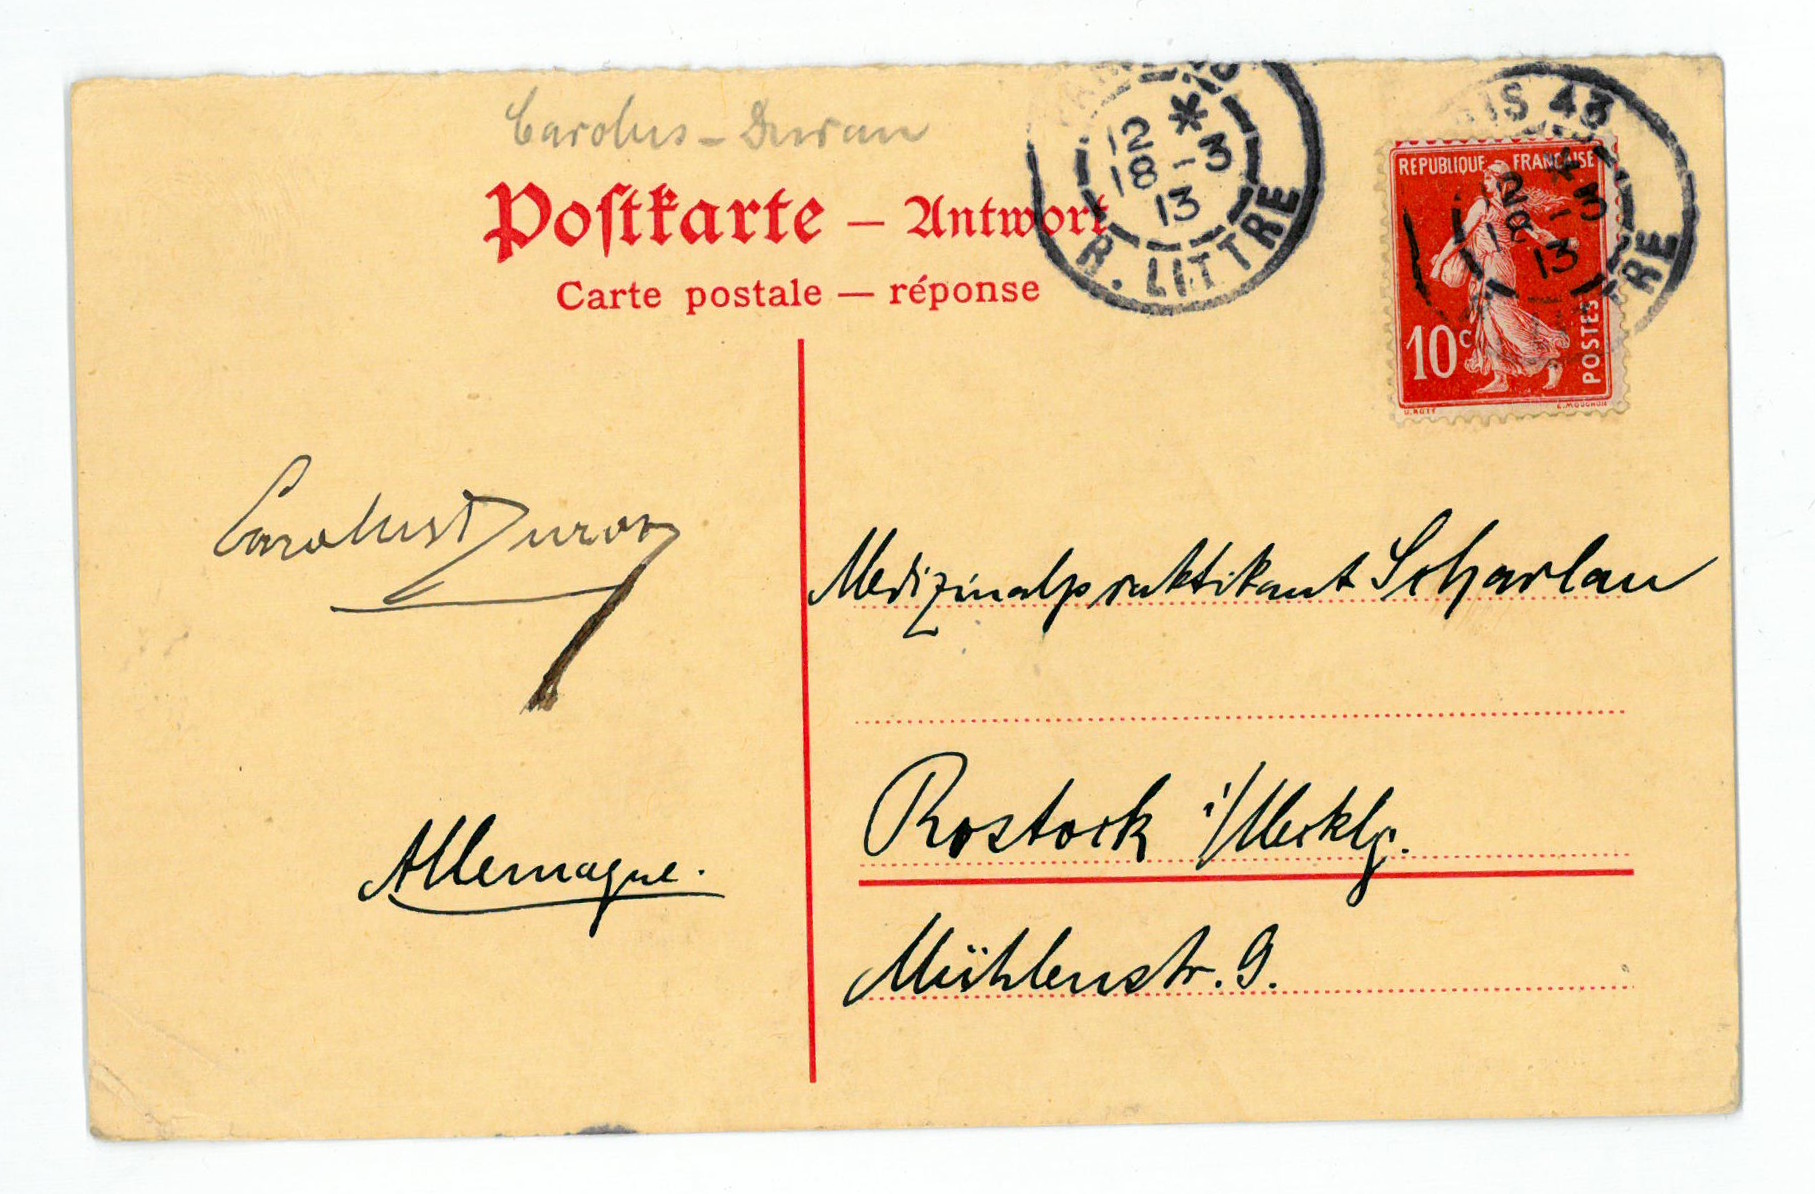 Carolus-Duran
Postkarte — Antwort
Carte postale — réponse
12 *
18-3
13
R. LITTRE
PARIS 43
12 *
18-3
13
LITTRE
REPUBLIQUE FRANÇAISE
10c
POSTES
O. ROTY
E. MOUCHON
Carolus Duran
Medizinalpraktikant Scharlau
Rostock i/Mecklg.
Allemagne.
Mühlenstr. 9.